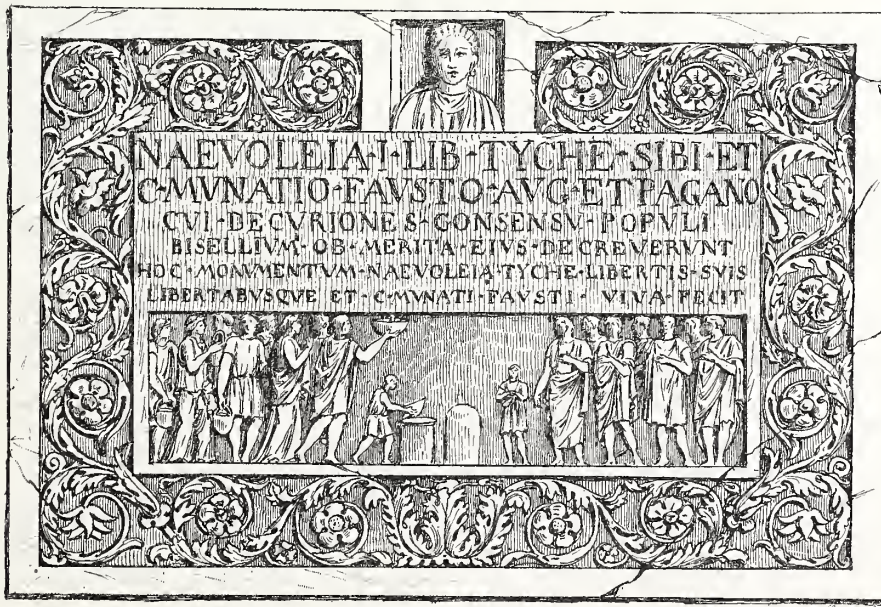 NAEVOLEIA·I·LIB·TYCHE·SIBI·ET
C·MVNATIO·FAVSTO·AVG·ET PAGANO
CVI·DECVRIONES·GONSENSV·POPVLI
BISELLIVM·OB·MERITA·EIVS·DECREVERVNT
HOC·MONVMENTVM·NAEVOLEIA·TYCHE·LIBERTIS·SVIS
LIBERTABVSQVE ET·C·MVNATI·FAVSTI·VIVA·FECIT